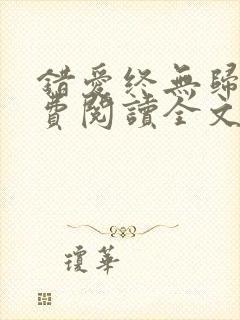 錯愛終無歸
費閱讀全文
瓊華